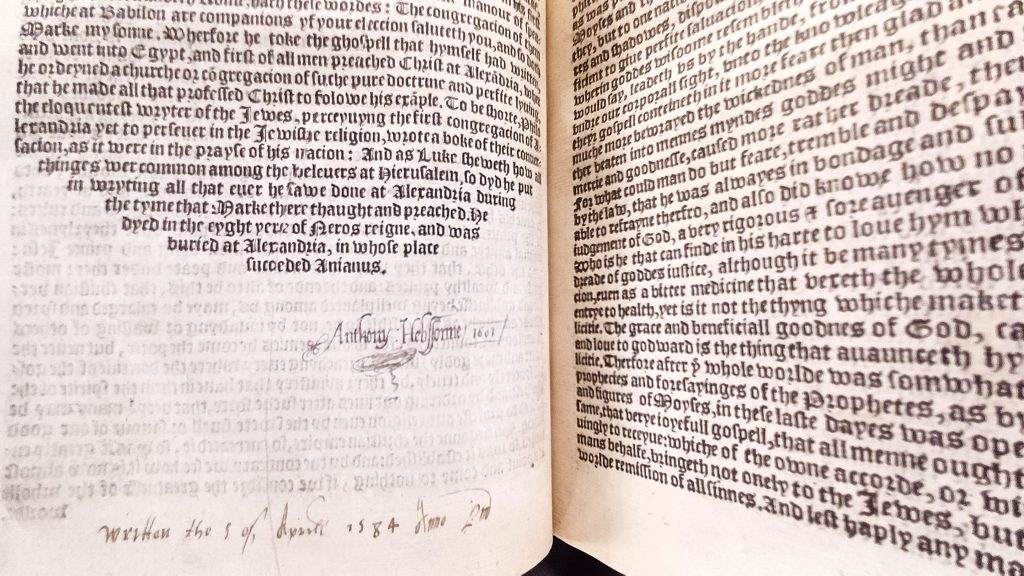 which at Babilon are companions yf your eleccion saluteth you, and so doth
Marke my sonne. Wherfore he toke the ghospell that hymself had written,
and went into Egypt, and first of all men preached Christ at Alexādria, wher
he ordeyned a churche or cōgregacion of suche pure doctrine and perfite lyuing,
that he made all that professed Christ to folowe his exāple. To be shorte, Philo
the eloquentest wryter of the Jewes, perceyuyng the first congregacion of A-
lexandria yet to perseuer in the Jewishe religion, wrote a boke of their conuer-
sacion, as it were in the prayse of his nacion: And as Luke sheweth how all
thinges wer common among the beleuers at Hierusalem, so dyd he put
in wryting all that euer he sawe done at Alexandria during
the tyme that Marke there thaught and preached. He
dyed in the eyght yere of Neros reigne, and was
buried at Alexandria, in whose place
succeded Anianus.
Anthony 1601
written the 5 of Aprill 1584 Anno Dnd
they, but to one nati
res and shadowes, dispo
ficient to giue perfite saluacion
wherin goddes wissome resembleth
would say, leadeth vs by the hande, fro
vndre our corporall sight, vnto the knowleag
they: gospell conteineth in it more feare then glad a
muche more bewrayed the wickednes of man, than ca
ther beaten into mennes myndes goddes might and
mercie and goodnesse, caused more rather dreade, the
For what could man do but feare, tremble and despay
by the law, that he was alwayes in bondage and su
able to refrayne therfro, and also did knowe how no
iudgement of God, a very rigorous & sore auenger of
who is he that can finde in his harte to loue hym wh
dreade of goddes iustice, although it be many tymes
cion, euen as a bitter medicine that bereth the whole
entrye to health, yet is it not the thyng whiche maket
licitie. The grace and beneficiall goodnes of God, ca
and loue to godward is the thing that auaunceth hy
licitie. Therfore after þͤ whole worlde was somwhat
prophecies and foresayinges of the Prophetes, as by
and figures of Moyses, in these laste dayes was ope
same, that verye ioyefull gospell, that all menne ought
uingly to receyue: whiche of the owne accorde, or wi
mans behalfe, bringeth not onely to the Jewes, but
worlde remission of all sinnes. And lest haply any ma